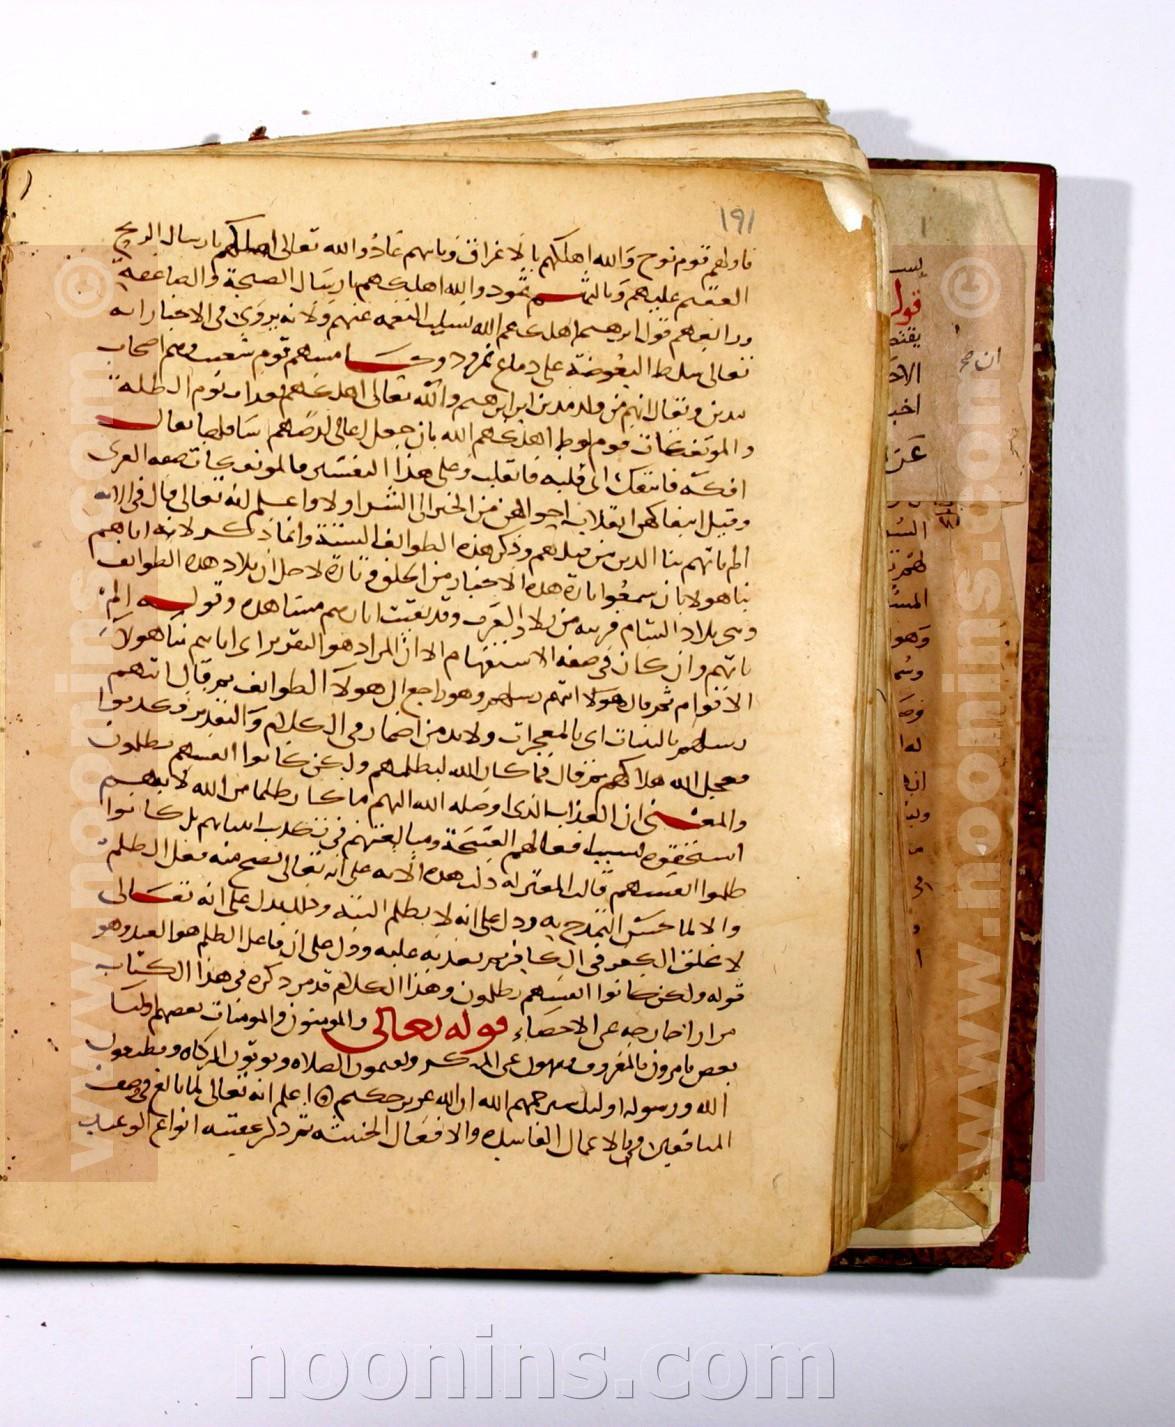 ١٩١
فاولهم قوم نوح والله اهلكهم بالاغراق وثانيهم عاد والله تعالى اهلكهم بارسال الريح
العقيم عليهم وثالثهم ثمود والله اهلكهم بارسال الصيحة والصاعقة
ورابعهم قوم ابرهيم اهلكهم الله بسلب النعمه عنهم ولانه يروى فى الاخبار انه
تعالى سلط البعوضة على دماغ نمرود وخامسهم قوم شعيب وهم اصحاب
مدين ويقال انهم من ولد مدين ابن ابرهيم والله تعالى اهلكهم بعذاب يوم الظلة
والموتفكات قوم لوط اهلكهم الله بان جعل اعالى ارضهم اسافلها يقال
افكته فاتفك اى قلبه فانقلب وعلى هذا التفسير فالموتفكات صفه القرى
وقيل ايتفاكهن انقلاب احوالهن من الخير الى الشر اولا واعلم انه تعالى قال فى الايه
الم ياتهم نبا الدين من قبلهم وذكر هذه الطوايف الستة وانما ذكر لانه اتاهم
نبا هولا بان سمعوا تارة هده الاخبار من الخلق وتارة لاجل ان بلاد هده الطوايف
وهى بلاد الشام قريبه من بلاد العرب وقد بقيت اثارهم مشاهده وقوله الم
ياتهم وان كان فى صفه الاستفهام الا ان المراد هو التقرير اى اتاهم نبا هولآ
الاقوام ثم قال هولا اتتهم رسلهم وهو راجع الى هولآ الطوايف ثم قال اتتهم
رسلهم بالبينات اى بالمعجزات ولا بد من اضمار فى الكلام والتقدير فكدبوا
فعجل الله هلاكهم ثم قال فما كان الله ليظلمهم ولكن كانوا انفسهم يظلمون
والمعنى ان العذاب الذى اوصله الله اليهم ما كان ظلما من الله لانهم
استحقوه بسبب افعالهم القبيحة ومبالغتهم فى تكذيب انبيائهم بل كانوا
ظلموا انفسهم قالت المعتزله دلت هده الايه على انه تعالى لا يصح منه فعل الظلم
والا لما حسن التمدح به ودل على انه لا يظلم البته وذلك يدل على انه تعالى
لا يخلق الكفر فى الكافر ثم يعذبه عليه ودل على ان فاعل الظلم هو العبد وهو
قوله ولكن كانوا انفسهم يظلمون وهذا الكلام قد مر ذكره فى هذا الكتاب
مرارا خارجه عن الاحصاء قوله تعالى والمومنون والمومنات بعضهم اوليا
بعض يامرون بالمعروف وينهون عن المنكر ويقيمون الصلاه ويوتون الزكاه ويطيعون
الله ورسوله اوليك سيرحمهم الله ان الله عزيز حكيم اعلم انه تعالى لما بالغ فى وصف
المنافقين بالاعمال الفاسده والافعال الخبيثه ثم ذكر عقيبه انواع الوعيد
قول
عز
www.noonins.com ©
www.noonins.com ©
noonins.com